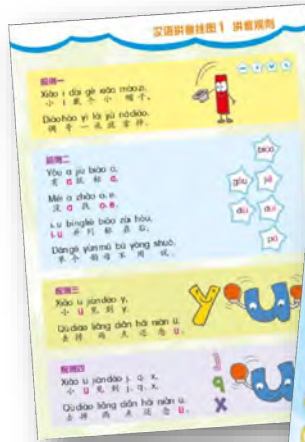 汉语拼音挂图1 拼音规则
规则一
Xiǎo i dài gè xiǎo màozi,
小 i 戴 个 小 帽子,
Diàohào yī lái jiù nádiào.
调 号 一 来 就 拿掉。
规则二
Yǒu a jiù biāo a,
有 a 就 标 a,
Méi a zhǎo o、e,
没 a 找 o、e,
i、u bìngliè biāo zài hòu,
i、u 并 列 标 在 后,
Dāngè yùnmǔ bù yòng shuō.
单 个 韵 母 不 用 说。
biāo
gǒu
duì
规则三
Xiǎo ü jiàndào y,
小 ü 见 到 y,
Qùdiào liǎng diǎn hái niàn ü.
去 掉 两 点 还 念 ü。
y ü
规则四
Xiǎo ü jiàndào j、q、x,
小 ü 见 到 j、q、x,
Qùdiào liǎng diǎn hái niàn ü.
去 掉 两 点 还 念 ü。
j
q
x
ü